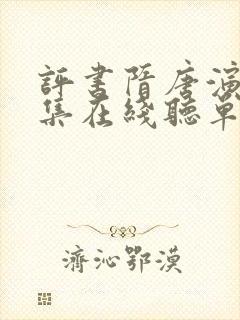 評書隋唐演
集在綫聽單
濟沁鄂漠